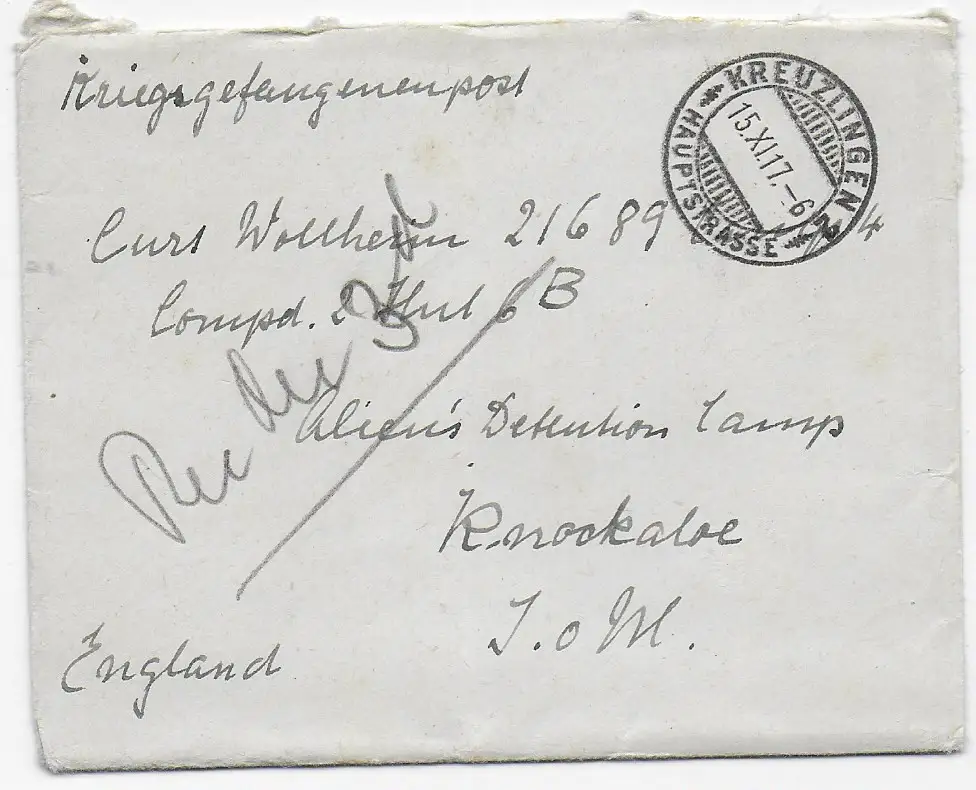 Kriegsgefangenenpost
KREUZLINGEN 2
15.XI.17.-6
HAUPTSTRASSE
Curt Wollheim 21689 4
Compd. 2 Hut 6 B
Alien's Detention Camp
Knockaloe
I.o M.
England